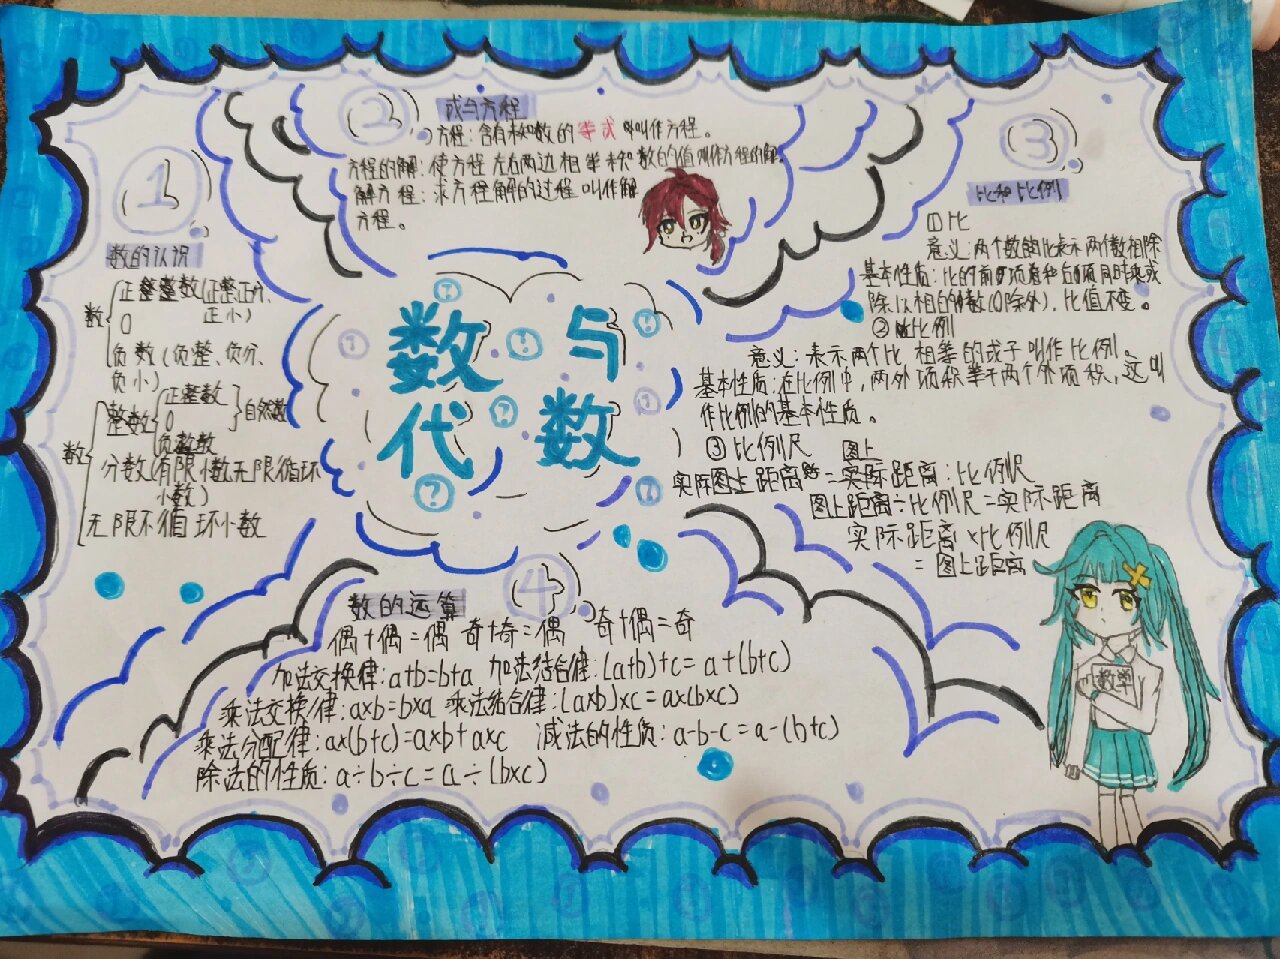 数与
代数
1
数的认识
数
正整整数(正整、正分、
正小)
0
负数(负整、负分、
负小)
数
整数
正整数
0
负整数
自然数
分数(有限小数无限循环
小数)
无限不循环小数
2
式与方程
方程:含有未知数的等式叫作方程。
方程的解:使方程左右两边相等未知数的值叫作方程的解。
解方程:求方程解的过程叫作解
方程。
3
比和比例
①比
意义:两个数的比表示两个数相除
基本性质:比的前项和后项同时乘或
除以相同的数(0除外),比值不变。
②比例
意义:表示两个比相等的式子叫作比例。
基本性质:在比例中,两外项积等于两个外项积,这叫
作比例的基本性质。
③比例尺 图上
实际图上距离=实际距离:比例尺
图上距离÷比例尺=实际距离
实际距离×比例尺
=图上距离
4
数的运算
偶+偶=偶 奇+奇=偶 奇+偶=奇
加法交换律:a+b=b+a 加法结合律:(a+b)+c=a+(b+c)
乘法交换律:a×b=b×a 乘法结合律:(a×b)×c=a×(b×c)
乘法分配律:a×(b+c)=a×b+a×c 减法的性质:a-b-c=a-(b+c)
除法的性质:a÷b÷c=a÷(b×c)
数学